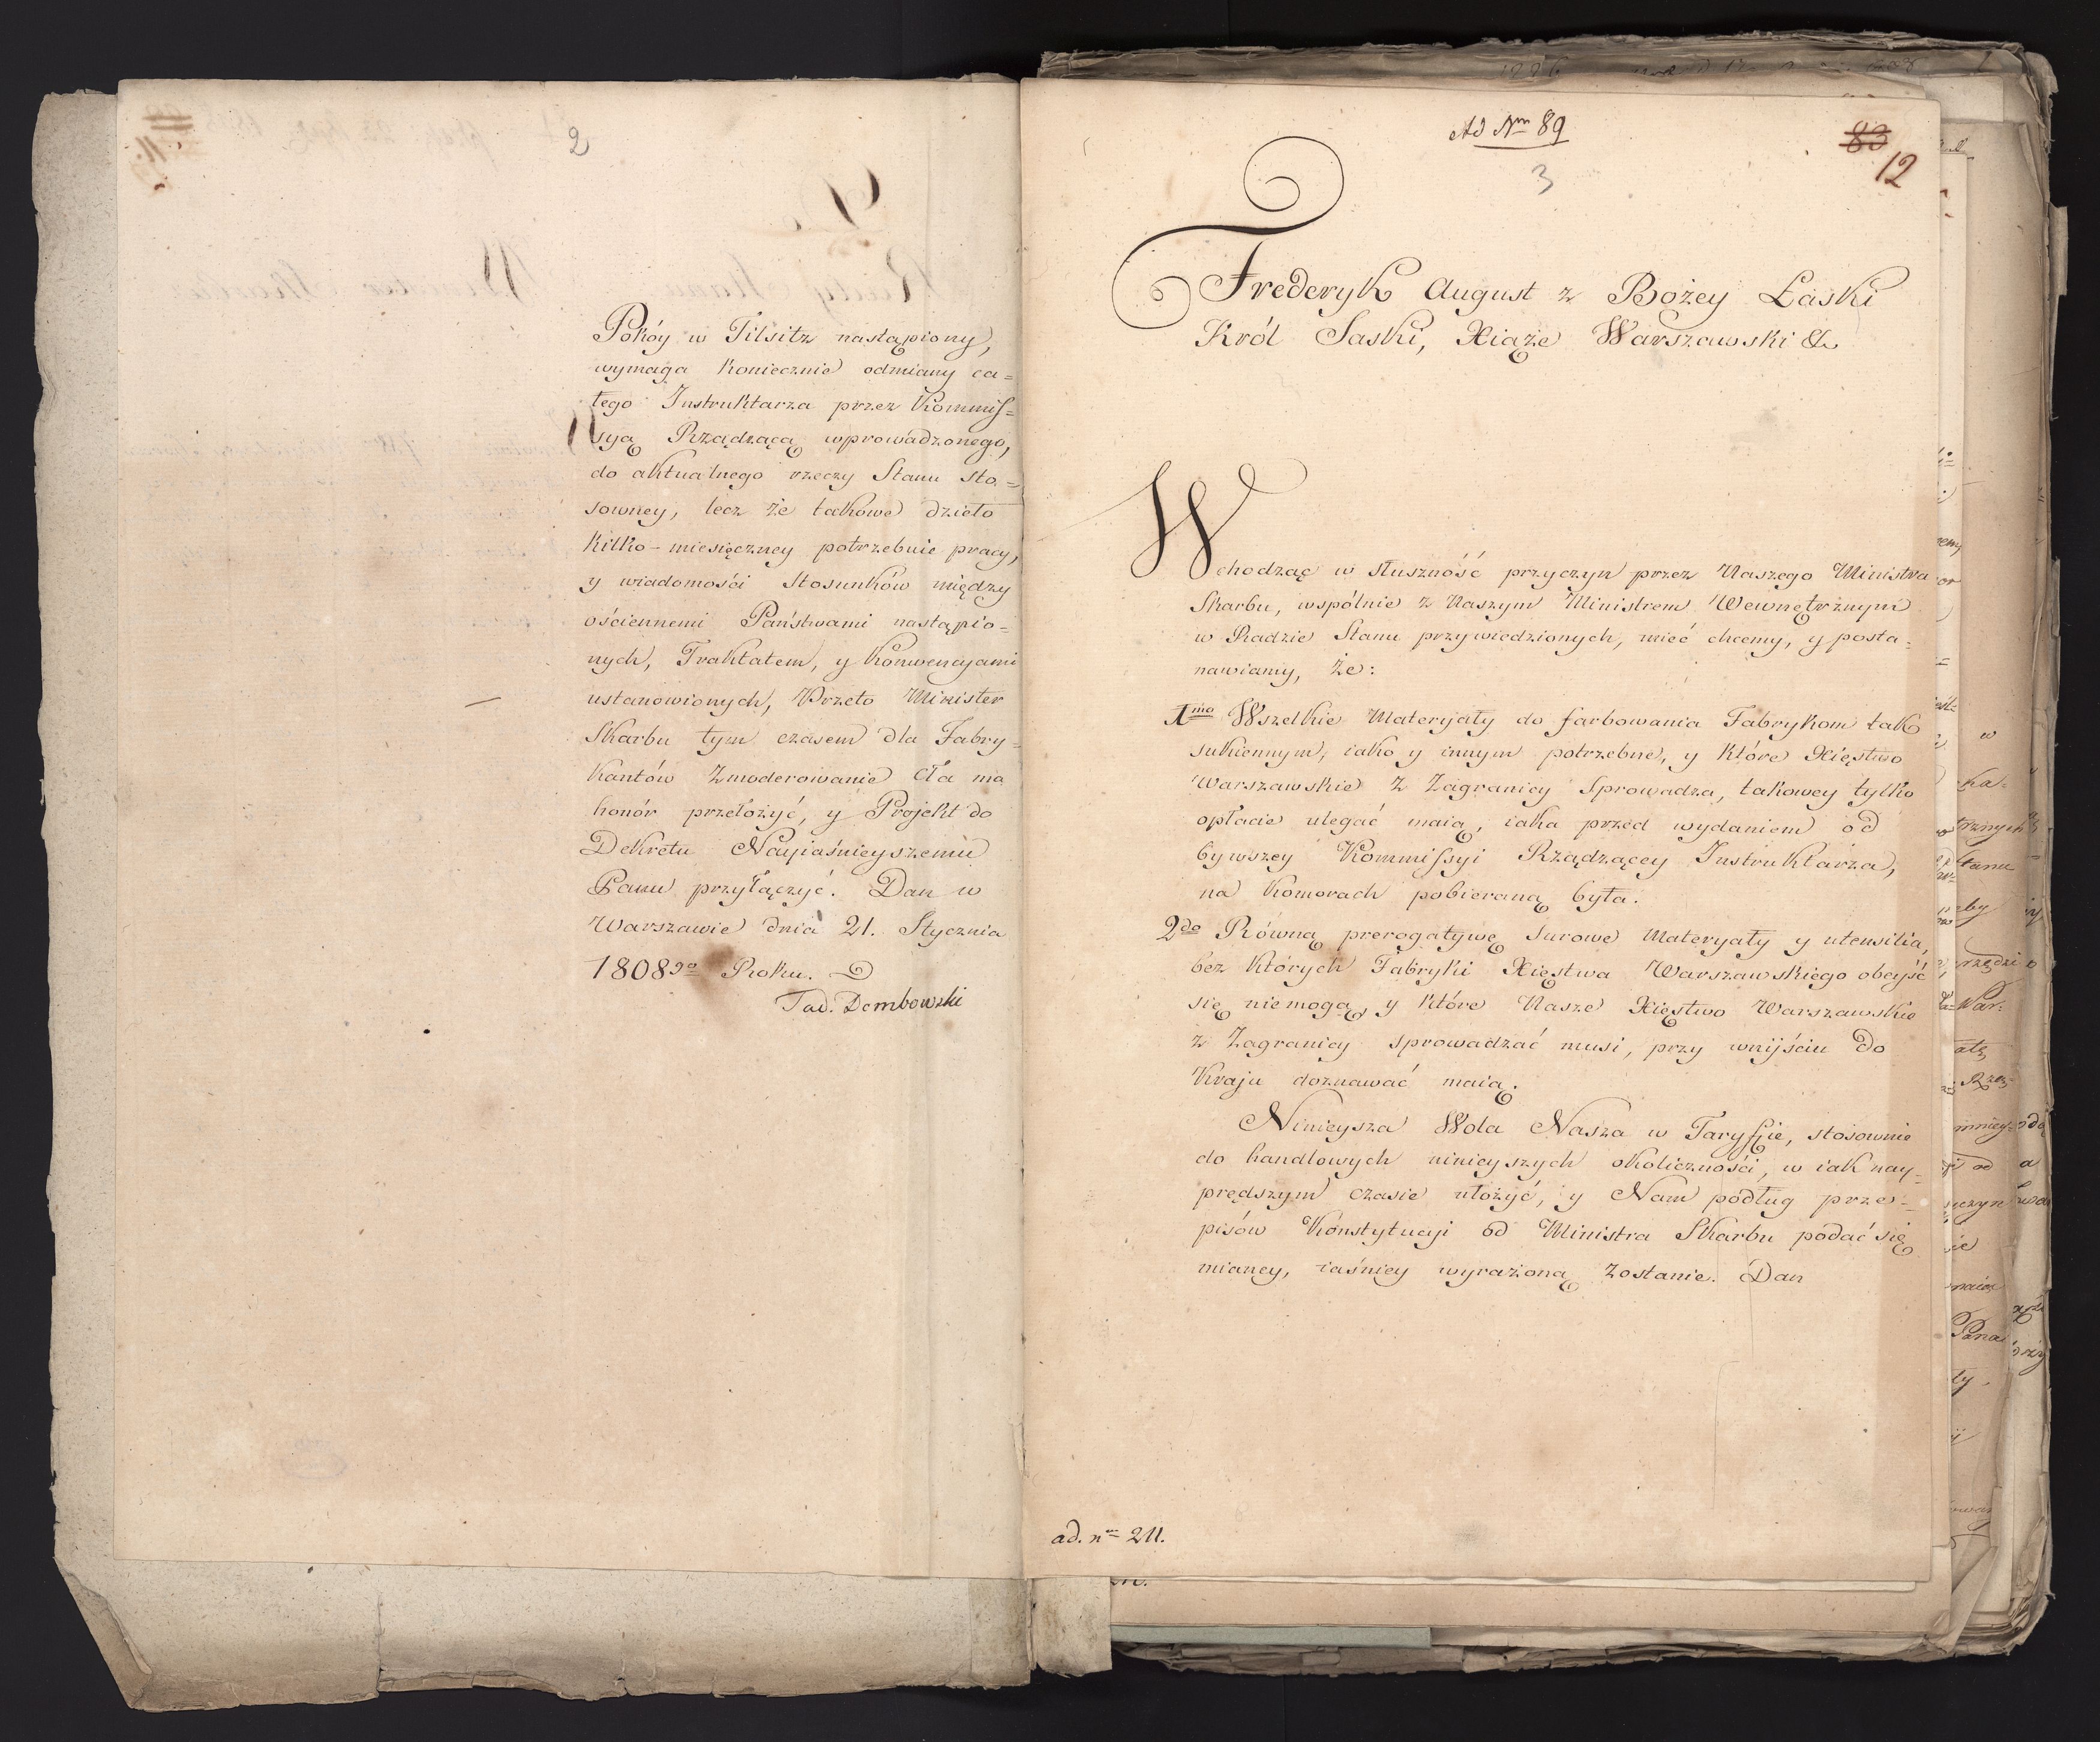 2
Pokóy w Tilsitz nastąpiony,
wymaga koniecznie odmiany ca=
łego Instruktarza przez Kommis=
syą Rządzącą wprowadzonego,
do aktualnego rzeczy Stanu sto=
sowney, lecz że takowe dzieło
kilko-miesięczney potrzebuie pracy,
y wiadomości Stosunków między
ościennemi Państwami nastąpio=
nych, Traktatem, y Konwencyami
ustanowionych, Przeto Minister
Skarbu tym czasem dla Fabry=
kantów Zmoderowanie Cła ma
honór przełożyć, y Projekt do
Dekretu Nayiaśnieyszemu
Panu przyłączyć. Dan w
Warszawie dnia 21. Stycznia
1808go Roku.
Tad. Dembowski
Ad Nm 89
83
12
3
Frederyk August z Bożey Łaski
Król Saski, Xiąże Warszawski &
Wchodząc w słuszność przyczyn przez Naszego Ministra
Skarbu, wspólnie z Naszym Ministrem Wewnętrznym
w Radzie Stanu przywiedzionych, mieć chcemy, y posta=
nawiamy, że:
1mo Wszelkie Materyały do farbowania Fabrykom tak
sukiennym, iako y innym potrzebne, y które Xięstwo
Warszawskie z Zagranicy Sprowadza, takowey tylko
opłacie ulegać maią, iaka przed wydaniem od
bywszey Kommissyi Rządzącey Instruktarza,
na Komorach pobieraną była.
2do Równą prerogatywę Surowe Materyały y utensilia,
bez których Fabryki Xięstwa Warszawskiego obeyść
się niemogą, y które Nasze Xięstwo Warszawskie
z Zagranicy sprowadzać musi, przy wnijściu do
Kraju doznawać maią.
Ninieysza Wola Nasza w Taryffie, stosownie
do handlowych ninieyszych okoliczności, w iak nay=
prędszym czasie ułożyć, y Nam podług prze=
pisów Konstytucyi od Ministra Skarbu podać się
mianey, iaśniey wyrażoną zostanie. Dan
ad. nm 211.